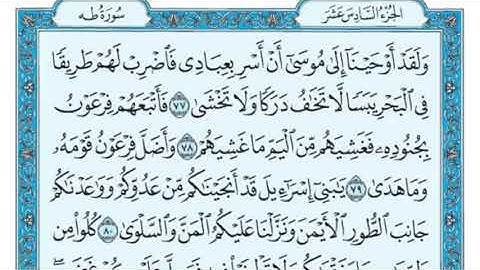 الجُزْءُ السَّادِسَ عَشَرَ
سُورَةُ طه
وَلَقَدْ أَوْحَيْنَآ إِلَىٰ مُوسَىٰٓ أَنْ أَسْرِ بِعِبَادِى فَٱضْرِبْ لَهُمْ طَرِيقًا
فِى ٱلْبَحْرِ يَبَسًا لَّا تَخَٰفُ دَرَكًا وَلَا تَخْشَىٰ ٧٧ فَأَتْبَعَهُمْ فِرْعَوْنُ
بِجُنُودِهِۦ فَغَشِيَهُم مِّنَ ٱلْيَمِّ مَا غَشِيَهُمْ ٧٨ وَأَضَلَّ فِرْعَوْنُ قَوْمَهُۥ
وَمَا هَدَىٰ ٧٩ يَٰبَنِىٓ إِسْرَٰٓءِيلَ قَدْ أَنجَيْنَٰكُم مِّنْ عَدُوِّكُمْ وَوَٰعَدْنَٰكُمْ
جَانِبَ ٱلطُّورِ ٱلْأَيْمَنَ وَنَزَّلْنَا عَلَيْكُمُ ٱلْمَنَّ وَٱلسَّلْوَىٰ ٨٠ كُلُوا۟ مِن